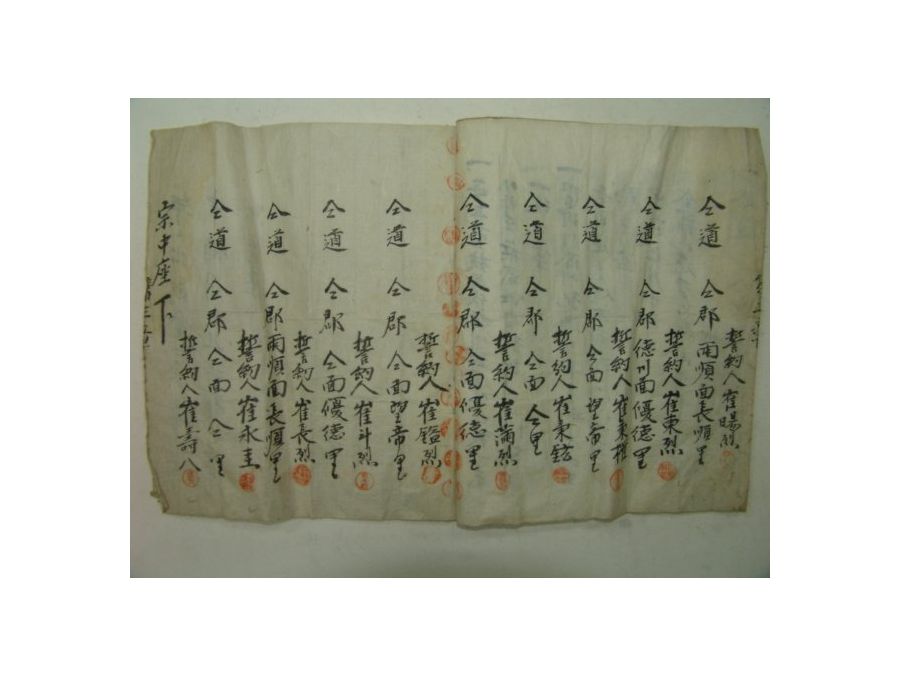 誓約人崔暘烈
仝道 仝郡 雨順面長順里
誓約人崔東烈
仝道 仝郡 徳川面優徳里
誓約人崔東權
仝道 仝郡 仝面 望帝里
誓約人崔東鉉
仝道 仝郡 仝面 仝里
誓約人崔滿烈
仝道 仝郡 仝面 優徳里
誓約人崔鎰烈
仝道 仝郡 仝面望帝里
誓約人崔斗烈
仝道 仝郡 仝面優徳里
誓約人崔長烈
仝道 仝郡 雨順面長順里
誓約人崔永圭
仝道 仝郡 仝面 仝里
誓約人崔壽八
宗中座下